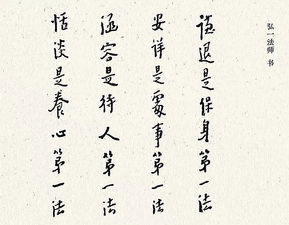 弘一法师 书
謙退是保身第一法
安详是處事第一法
涵容是待人第一法
恬淡是養心第一法